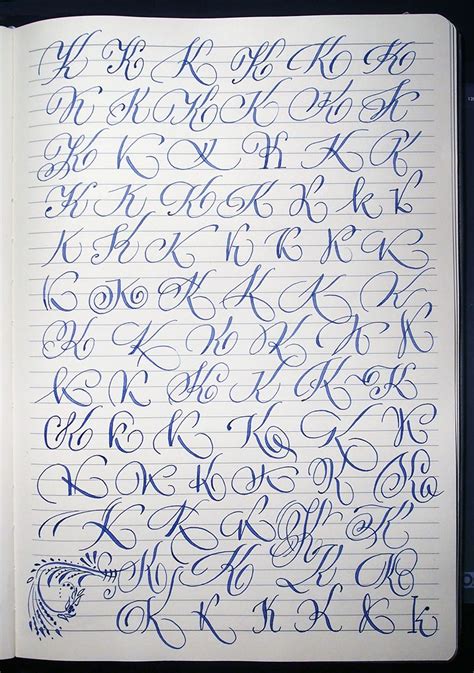 K K K K K K
K K K K K K
K K K K K K
K K K K K k k
K K K k K K K
k K K K K K
K K K K K K
k K K K K K
K k k K K K
K K K K K K
K K K K K
K K K K
K K K K K K k